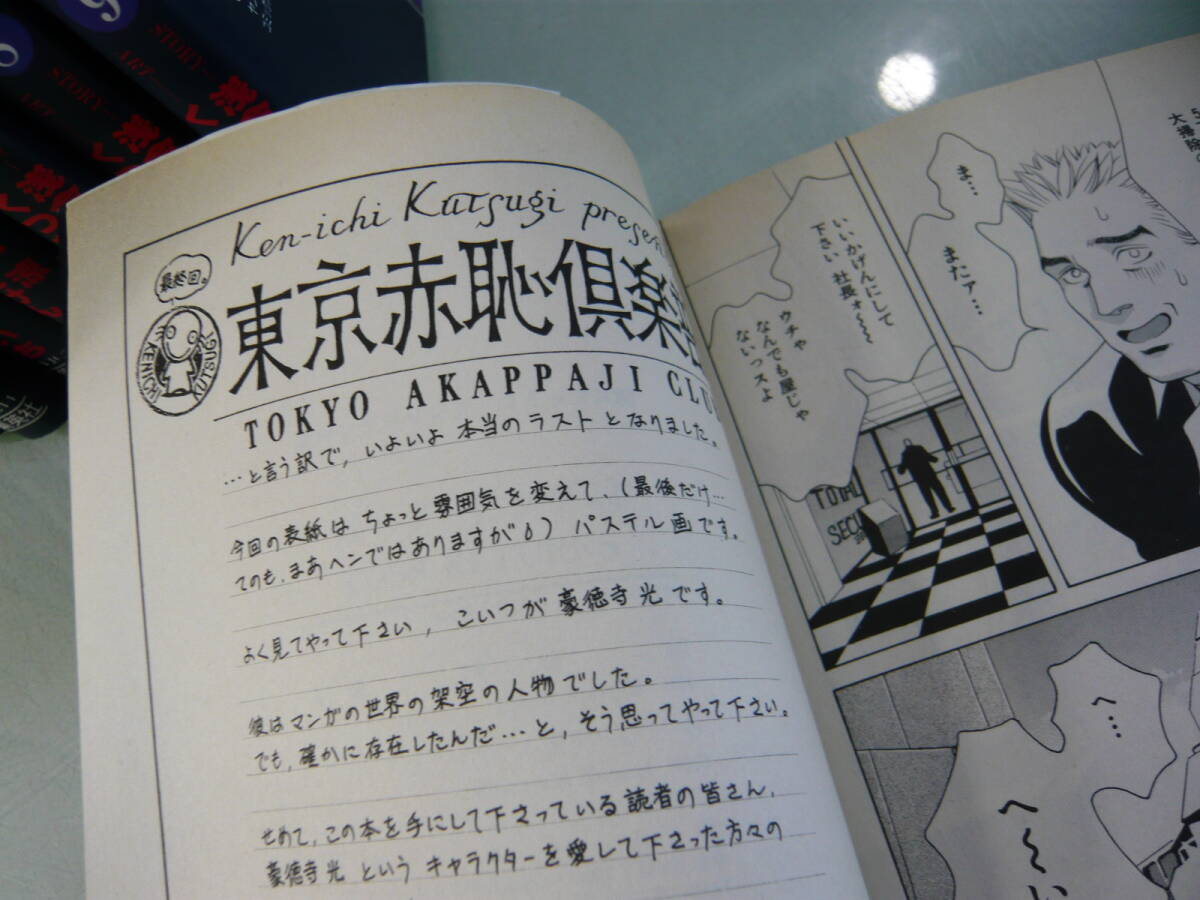 Ken-ichi Katsugi
最終回。
KENICHI KUTSUGI
東京赤恥倶楽
TOKYO AKAPPAJI
…と言う訳で、いよいよ本当のラストとなりました。
今回の表紙はちょっと雰囲気を変えて、(最後だけ…
てのも、まあヘンではありますが) パステル画です。
よく見てやって下さい，こいつが豪徳寺光です。
彼はマンガの世界の架空の人物でした。
でも、確かに存在したんだ…と，そう思ってやって下さい。
せめて、この本を手にして下さっている読者の皆さん、
豪徳寺光というキャラクターを愛して下さった方々の
ま…
またァ…
いいかげんにして
下さい 社長ォ〜〜
ウチゃ
なんでも屋じゃ
ないっスよ
TOTAL
SECU
へ…
へ〜い
大掃除
STORY
ART
STORY